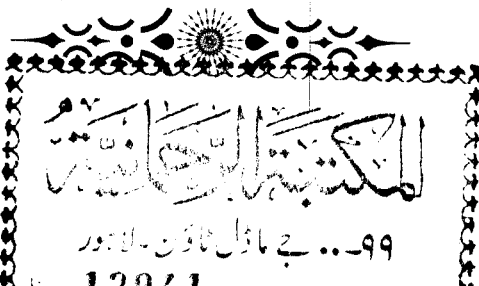 المكتبة الرحمانية
۹۹... جے ماڈل ٹاؤن - لاہور